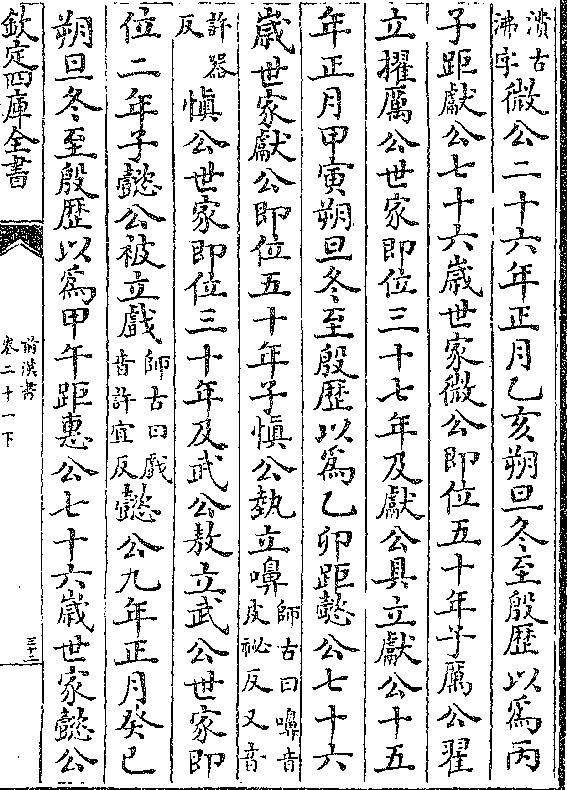 濆古沸字微公二十六年正月乙亥朔旦冬至殷歴以爲丙
子距獻公七十六歲世家微公即位五十年子厲公翟
立擢厲公世家即位三十七年及獻公具立獻公十五
年正月甲寅朔旦冬至殷歴以爲乙卯距懿公七十六
歲世家獻公即位五十年子慎公埶立嚊師古曰嚊音皮祕反又音
許器反慎公世家即位三十年及武公敖立武公世家即
位二年子懿公被立戲師古曰戲音許宜反懿公九年正月癸巳
朔旦冬至殷歴以爲甲午距惠公七十六歲世家懿公
欽定四庫全書
前漢書
卷二十一下
三十二